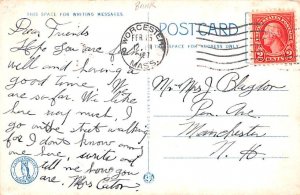 BOHR
THIS SPACE FOR WRITING MESSAGES
POSTCARD
SPACE FOR ADDRESS ONLY
WORCESTER
FEB 15
MASS.
2 CENTS 2
Dear Friends
Hope you are
well and having a
good time. We
are so far. We like
here very much. I
go on the streets walking
for I don't know anny
one here, write and
tell me how you
are. Mrs
Mr + Mrs J Blayton
Pen. Ave
Manchester
N. H.